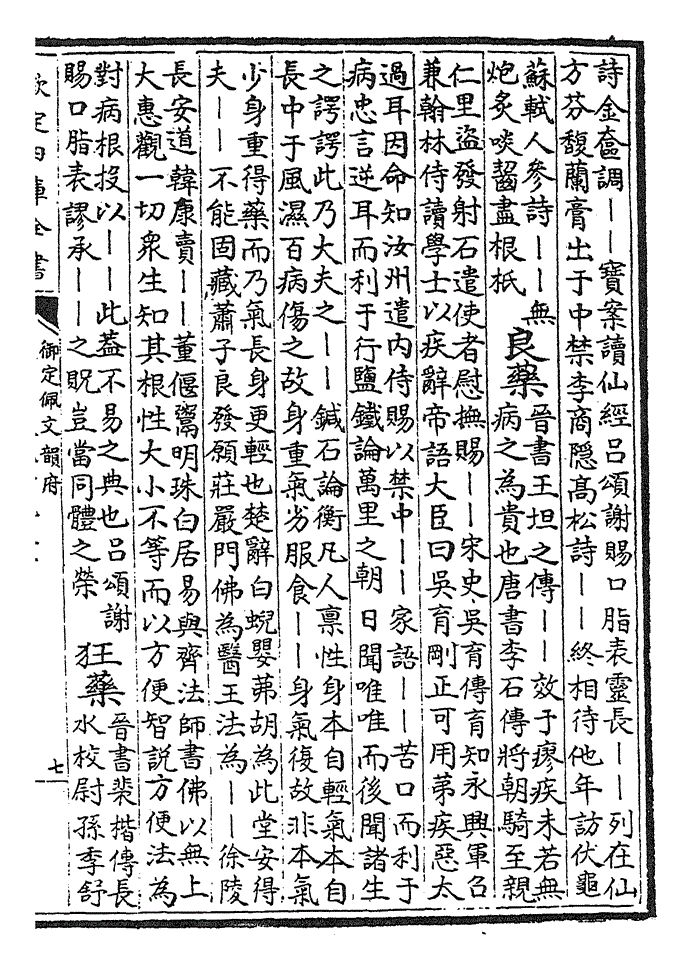 詩金奩調——寶案讀仙經呂頌謝賜口脂表靈長——列在仙
方芬馥蘭膏出于中禁李商隱高松詩——終相待他年訪伏龜
蘇軾人參詩——無
炮炙啖齧盡根柢
良藥
晉書王坦之傳——效于瘳疾未若無
病之為貴也唐書李石傳將朝騎至親
仁里盜發射石遣使者慰撫賜——宋史吳育傳育知永興軍召
兼翰林侍讀學士以疾辭帝語大臣曰吳育剛正可用苐疾惡太
過耳因命知汝州遣內侍賜以禁中——家語——苦口而利于
病忠言逆耳而利于行鹽鐵論萬里之朝日聞唯唯而後聞諸生
之諤諤此乃大夫之——鍼石論衡凡人禀性身本自輕氣本自
長中于風濕百病傷之故身重氣劣服食——身氣復故非本氣
少身重得藥而乃氣長身更輕也楚辭白蜺嬰茀胡為此堂安得
夫——不能固藏蕭子良發願莊嚴門佛為醫王法為——徐陵
長安道韓康賣——董偃鬻明珠白居易與齊法師書佛以無上
大惠觀一切衆生知其根性大小不等而以方便智説方便法為
對病根投以——此葢不易之典也呂頌謝
賜口脂表謬承——之貺豈當同體之榮
狂藥
晉書裴楷傳長
水校尉孫季舒
欽定四庫全書
御定佩文韻府
七